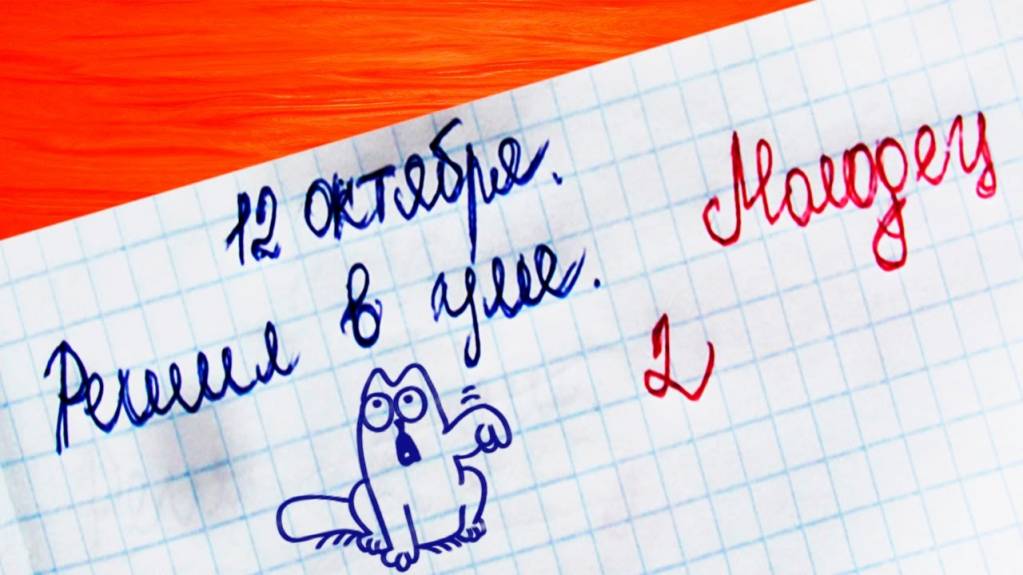 12 октября.
Решил в уме.
Молодец
2